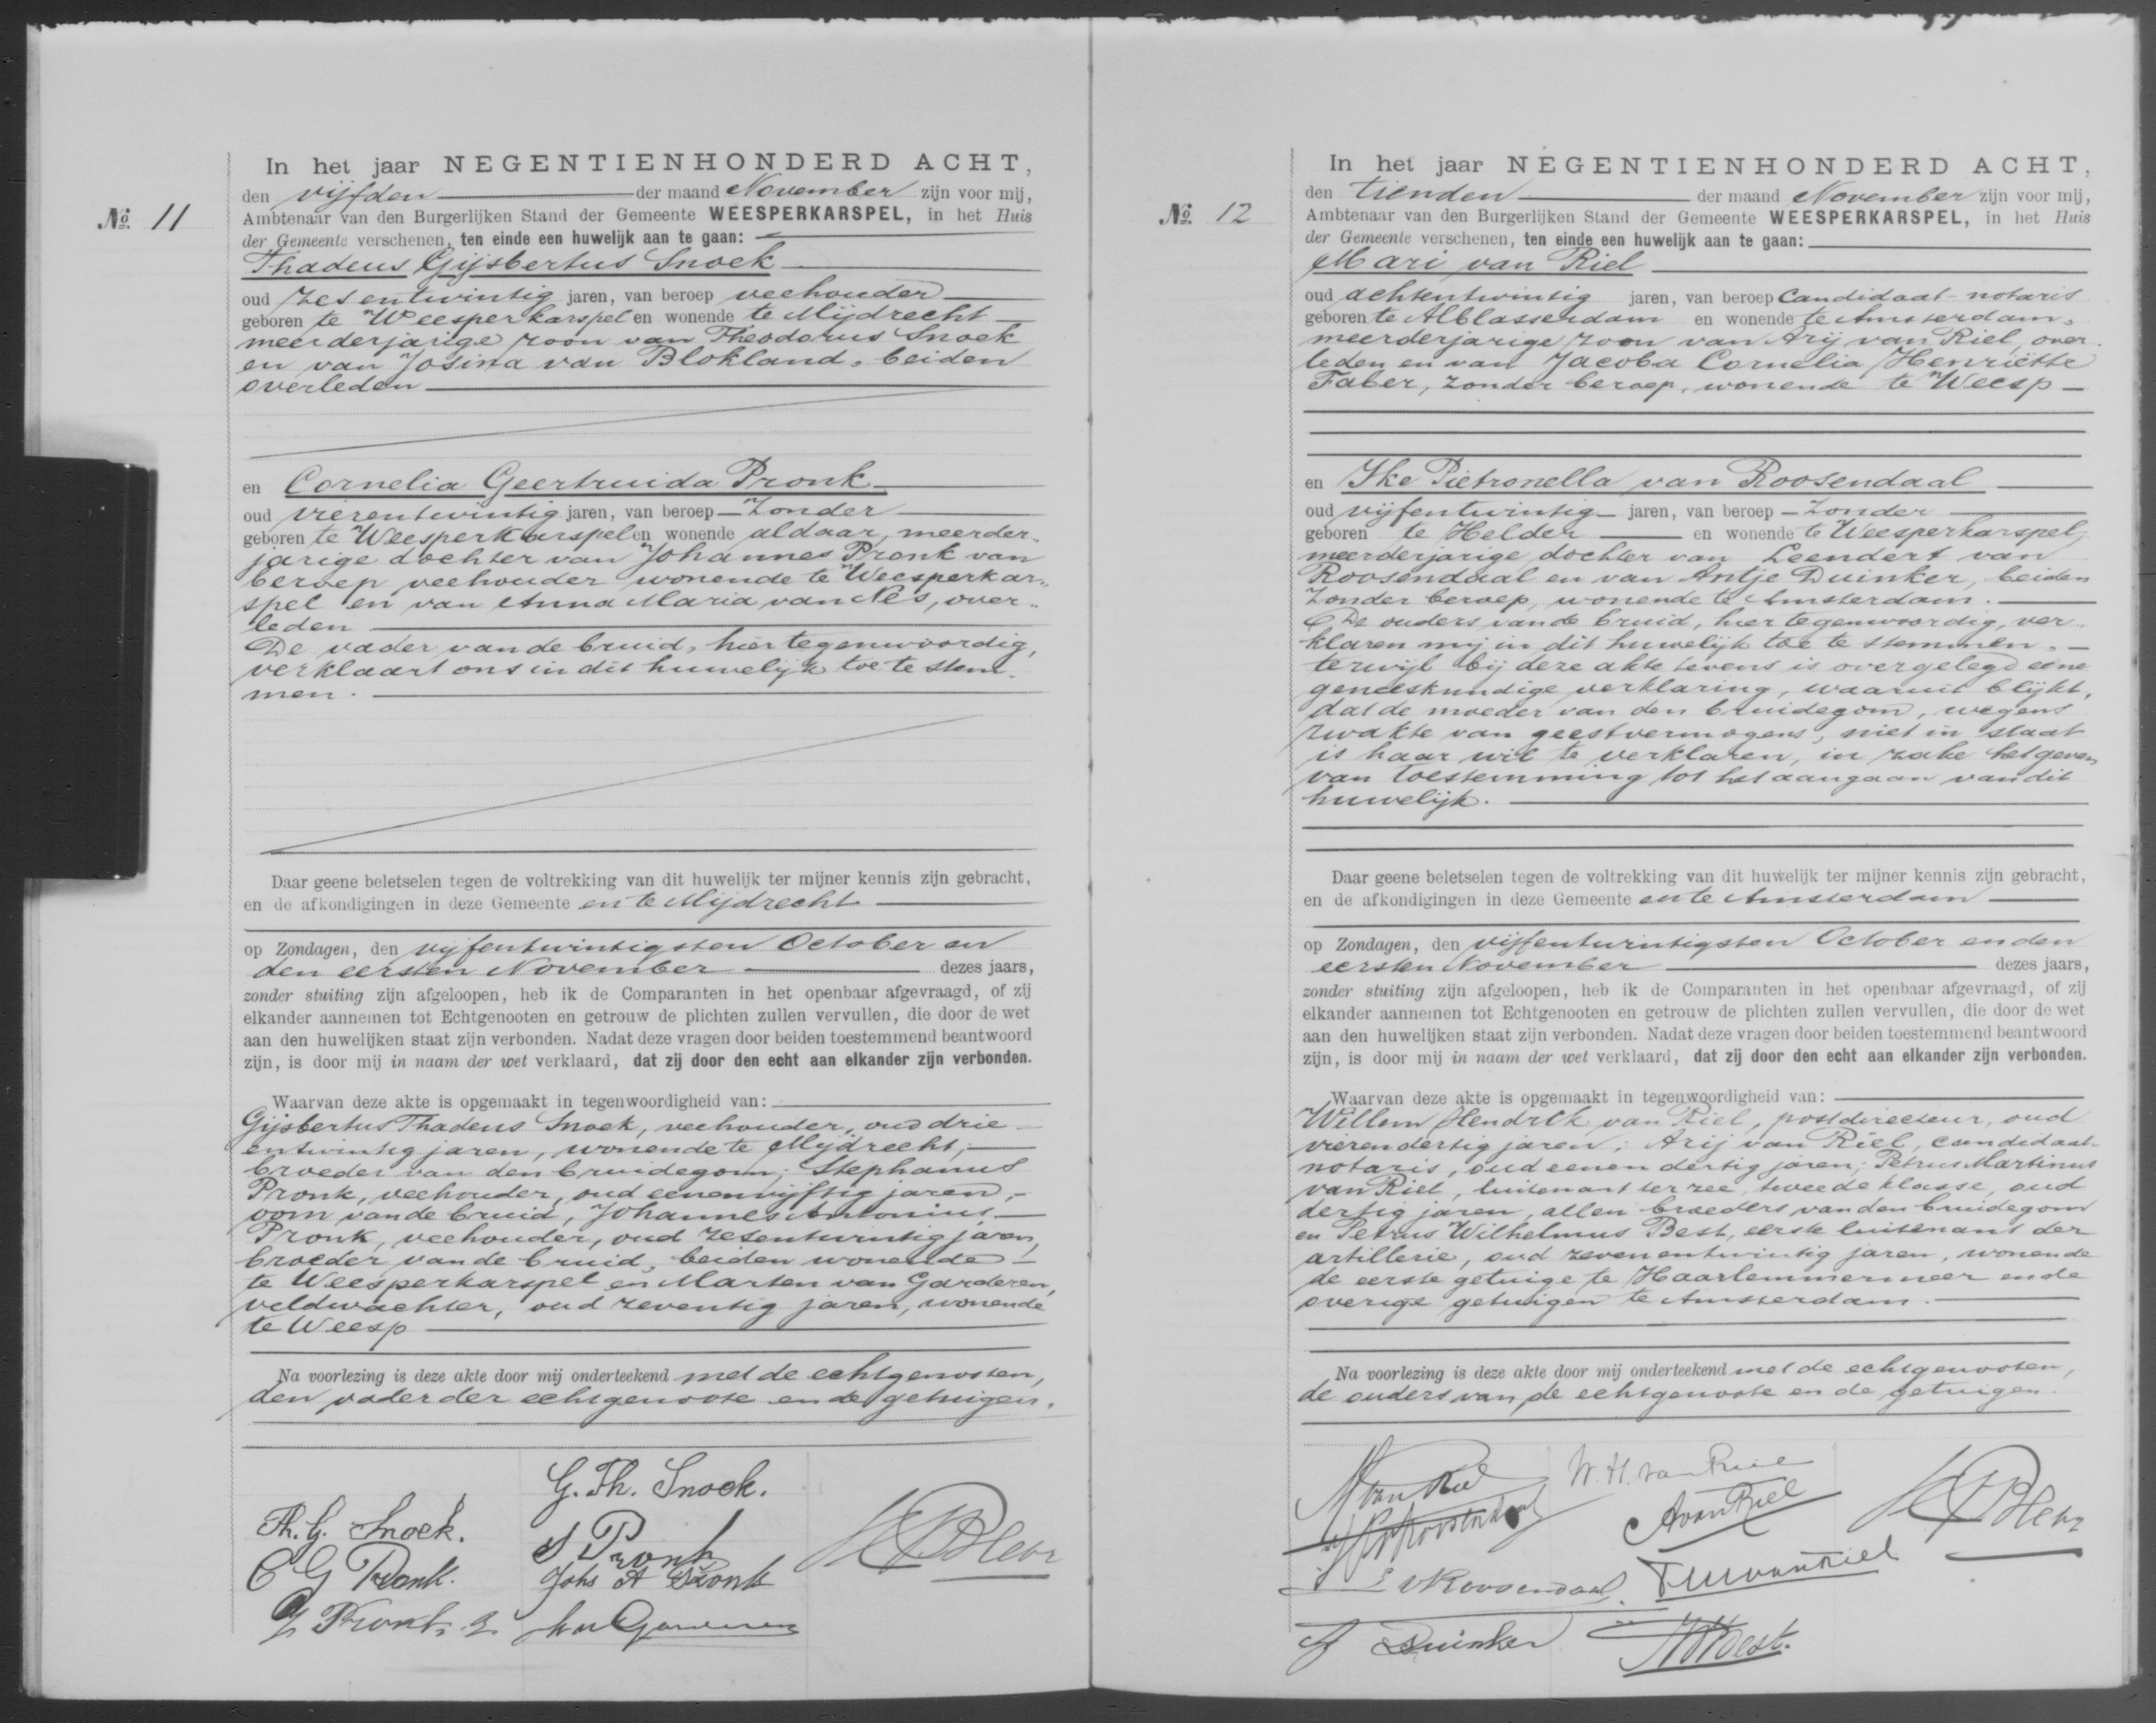 № 11
In het jaar NEGENTIENHONDERD ACHT,
den vijfden der maand November zijn voor mij,
Ambtenaar van den Burgerlijken Stand der Gemeente WEESPERKARSPEL, in het Huis
der Gemeente verschenen, ten einde een huwelijk aan te gaan:
Thadeus Gijsbertus Snoek
oud zesentwintig jaren, van beroep veehouder
geboren te Weesperkarspel en wonende te Mijdrecht
meerderjarige zoon van Theodorus Snoek
en van Josina van Blokland, beiden
overleden
en Cornelia Geertruida Pronk
oud vierentwintig jaren, van beroep Zonder
geboren te Weesperkarspel en wonende aldaar, meerder-
jarige dochter van Johannes Pronk van
beroep veehouder wonende te Weesperkar-
spel en van Anna Maria van Nes, over-
leden
De vader van de bruid, hier tegenwoordig,
verklaart ons in dit huwelijk toe te stem-
men.
Daar geene beletselen tegen de voltrekking van dit huwelijk ter mijner kennis zijn gebracht,
en de afkondigingen in deze Gemeente en te Mijdrecht
op Zondagen, den vijfentwintigsten October en
den eersten November dezes jaars,
zonder stuiting zijn afgeloopen, heb ik de Comparanten in het openbaar afgevraagd, of zij
elkander aannemen tot Echtgenooten en getrouw de plichten zullen vervullen, die door de wet
aan den huwelijken staat zijn verbonden. Nadat deze vragen door beiden toestemmend beantwoord
zijn, is door mij in naam der wet verklaard, dat zij door den echt aan elkander zijn verbonden.
Waarvan deze akte is opgemaakt in tegenwoordigheid van:
Gijsbertus Thadeus Snoek, veehouder, oud drie-
entwintig jaren, wonende te Mijdrecht,
broeder van den bruidegom; Stephanus
Pronk, veehouder, oud eenenvijftig jaren,
oom van de bruid, Johannes Antonius
Pronk, veehouder, oud zesentwintig jaren,
broeder van de bruid, beiden wonende
te Weesperkarspel en Marten van Garderen,
veldwachter, oud zeventig jaren, wonende
te Weesp
Na voorlezing is deze akte door mij onderteekend met de echtgenooten,
den vader der echtgenoote en de getuigen.
G. Th. Snoek.
Th. G. Snoek.
S Pronk
C G Pronk.
Johs A Pronk
Pronk
№ 12
In het jaar NEGENTIENHONDERD ACHT,
den tienden der maand November zijn voor mij,
Ambtenaar van den Burgerlijken Stand der Gemeente WEESPERKARSPEL, in het Huis
der Gemeente verschenen, ten einde een huwelijk aan te gaan:
Mari van Riel
oud achtentwintig jaren, van beroep Candidaat-notaris
geboren te Alblasserdam en wonende te Amsterdam,
meerderjarige zoon van Arij van Riel, over-
leden en van Jacoba Cornelia Henriëtte
Faber, zonder beroep, wonende te Weesp
en Ike Pietronella van Roosendaal
oud vijfentwintig jaren, van beroep Zonder
geboren te Helder en wonende te Weesperkarspel,
meerderjarige dochter van Leendert van
Roosendaal en van Antje Duinker, beiden
zonder beroep, wonende te Amsterdam.
De ouders van de bruid, hier tegenwoordig, ver-
klaren mij in dit huwelijk toe te stemmen,
terwijl bij deze akte tevens is overgelegd eene
geneeskundige verklaring, waaruit blijkt,
dat de moeder van den bruidegom, wegens
zwakte van geestvermogens, niet in staat
is haar wil te verklaren, in zake het geven
van toestemming tot het aangaan van dit
huwelijk.
Daar geene beletselen tegen de voltrekking van dit huwelijk ter mijner kennis zijn gebracht,
en de afkondigingen in deze Gemeente en te Amsterdam
op Zondagen, den vijfentwintigsten October en den
eersten November dezes jaars,
zonder stuiting zijn afgeloopen, heb ik de Comparanten in het openbaar afgevraagd, of zij
elkander aannemen tot Echtgenooten en getrouw de plichten zullen vervullen, die door de wet
aan den huwelijken staat zijn verbonden. Nadat deze vragen door beiden toestemmend beantwoord
zijn, is door mij in naam der wet verklaard, dat zij door den echt aan elkander zijn verbonden.
Waarvan deze akte is opgemaakt in tegenwoordigheid van:
Willem Hendrik van Riel, postdirecteur, oud
vierendertig jaren; Arij van Riel, candidaat-
notaris, oud eenendertig jaren; Petrus Martinus
van Riel, luitenant ter zee, tweede klasse, oud
dertig jaren, allen broeders van den bruidegom
en Petrus Wilhelmus Best, eerste luitenant der
artillerie, oud zevenentwintig jaren, wonende
de eerste getuige te Haarlemmermeer en de
overige getuigen te Amsterdam.
Na voorlezing is deze akte door mij onderteekend met de echtgenooten,
de ouders van de echtgenoote en de getuigen.
M van Riel
W. H. van Riel
A van Riel
vRoosendaal
A Duinker